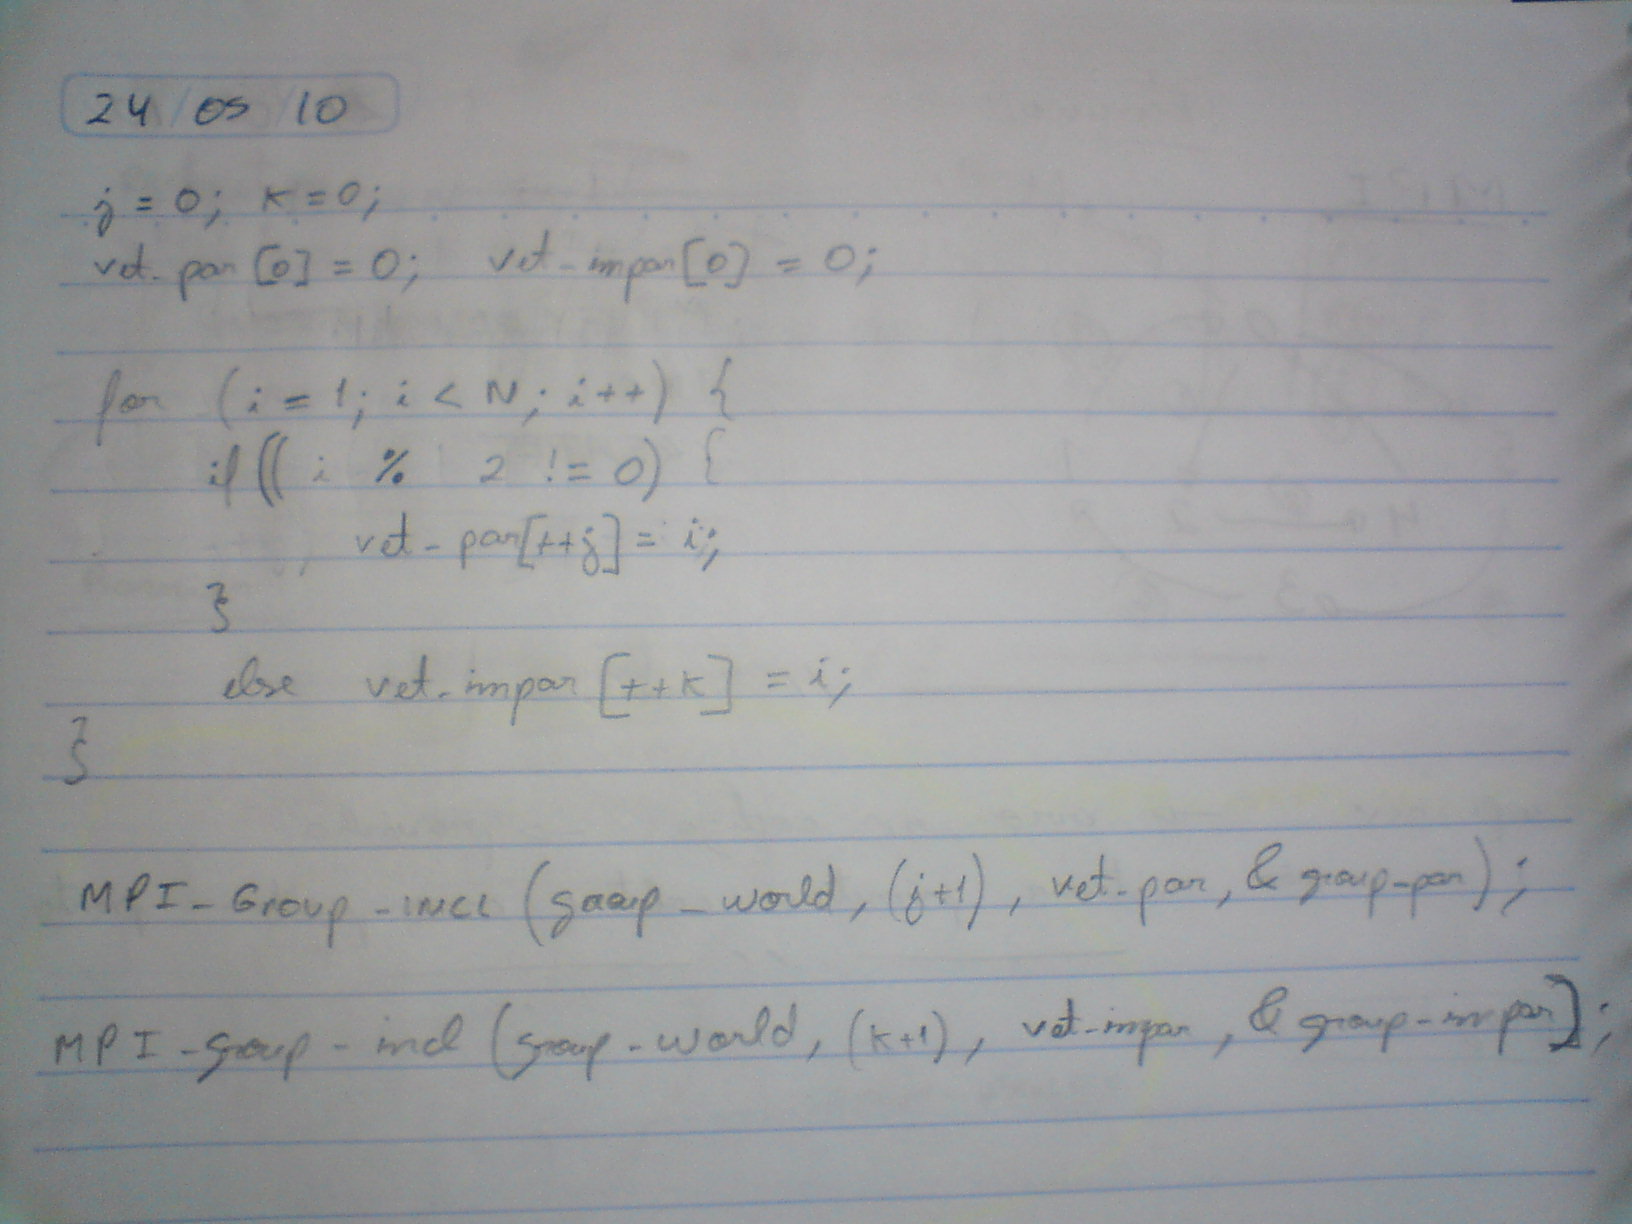 24/05/10
j = 0; k = 0;
vet_par[0] = 0; vet_impar[0] = 0;
for (i = 1; i < N; i++) {
if (( i % 2 != 0) {
vet_par[++j] = i;
}
else vet_impar[++k] = i;
}
MPI_Group_incl (group_world, (j+1), vet_par, & group_par);
MPI_group_incl (group_world, (k+1), vet_impar, & group_impar);